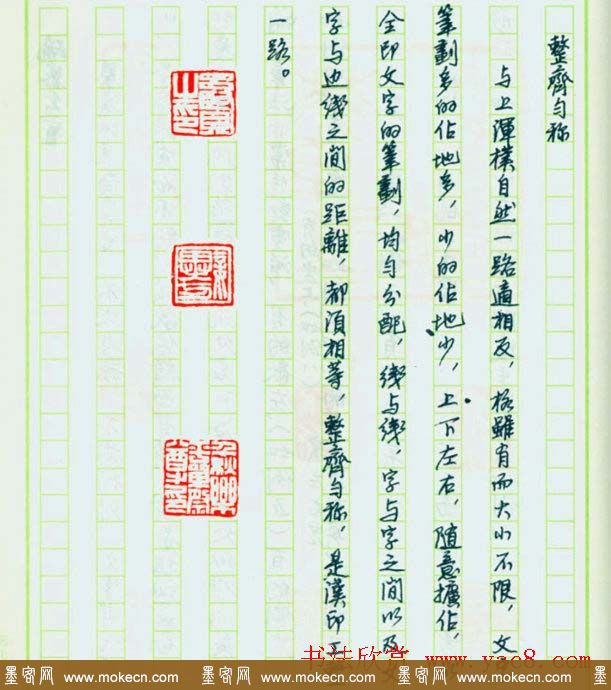 整齊勻称
与上渾樸自然一路適相反，格雖有而大小不限，文
筆劃多的佔地多，少的佔地少，上下左右，隨意擴佔，
全即文字的筆劃，均勻分配，綫与綫，字与字之間以及
字与边綫之間的距離，都須相等，整齊勻称，是漢印工
一路。
书法欣赏 www.yac8.com
墨客网 www.mokecn.com 墨客网 www.mokecn.com 墨客网 www.mokecn.com